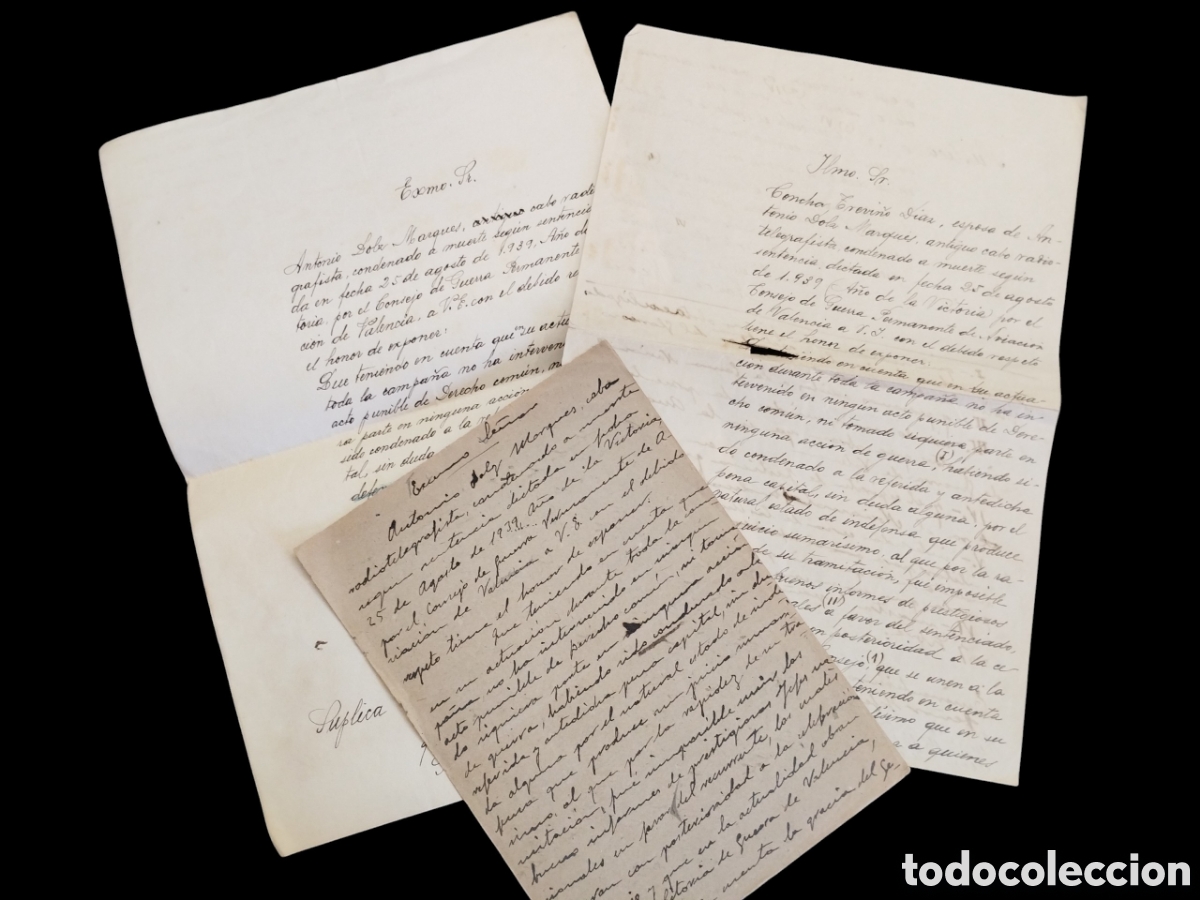 Exmo. Sr.
Antonio Dolz Marques, cabo radiote
grafista, condenado á muerte según sentencia
da en fecha 25 de agosto de 1.939, Año de
toria, por el Consejo de Guerra Permanente
cion de Valencia, a V.E. con el debido re
el honor de exponer:
Que teniendo en cuenta que en su actua
toda la campaña no ha interveni
acto punible de Derecho común, ni
ra parte en ninguna acción
sido condenado a la re
tal, sin duda
defen
Suplica
Ilmo. Sr.
Concha Treviño Diaz, esposa de An-
tonio Dolz Marques, antiguo cabo radio-
telegrafista, condenado a muerte según
sentencia dictada en fecha 25 de agosto
de 1.939 (Año de la Victoria) por el
Consejo de Guerra Permanente de
de Valencia a V. I. con el debido respeto
tiene el honor de exponer:
Que teniendo en cuenta que en su actua-
ción durante toda la campaña no ha in-
tervenido en ningun acto punible de Dere-
cho común, ni tomado siquiera parte en
ninguna acción de guerra, (I) habiendo si-
do condenado a la referida y antedicha
pena capital, sin duda alguna por el
natural estado de indefensa que produce
juicio sumarísimo, al que por la ra-
de su tramitación, fué imposible
buenos informes de prestigiosos
(II) a favor del sentenciado,
on posterioridad a la ce
(1) que se unen a la
teniendo en cuenta
simo que en su
a quienes
Excmo Señor
Antonio Dolz Marques, cabo
radiotelegrafista, condenado a muerte
segun sentencia dictada en fecha
25 de Agosto de 1939 Año de la Victoria,
por el Consejo de Guerra Permanente de A-
viación de Valencia a V. E. en el debido
respeto tiene el honor de exponer:
Que teniendo en cuenta que
en su actuación, durante toda la cam-
paña no ha intervenido en ningun
acto punible de Derecho común, ni toma-
do siquiera parte en ninguna acción
de guerra, habiendo sido condenado a la
referida y antedicha pena capital, sin du-
da alguna por el natural estado de inde-
fensa que produce un juicio sumarí-
simo, al que por la rapidez de su tra-
mitación, fué imposible unir los
buenos informes de prestigiosos Jefes na-
cionales en favor del recurrente, los cuales
van con posterioridad a la celebración
y que en la actualidad obran
ditoria de Guerra de Valencia,
cuenta la gracia del Ge-
todocoleccion